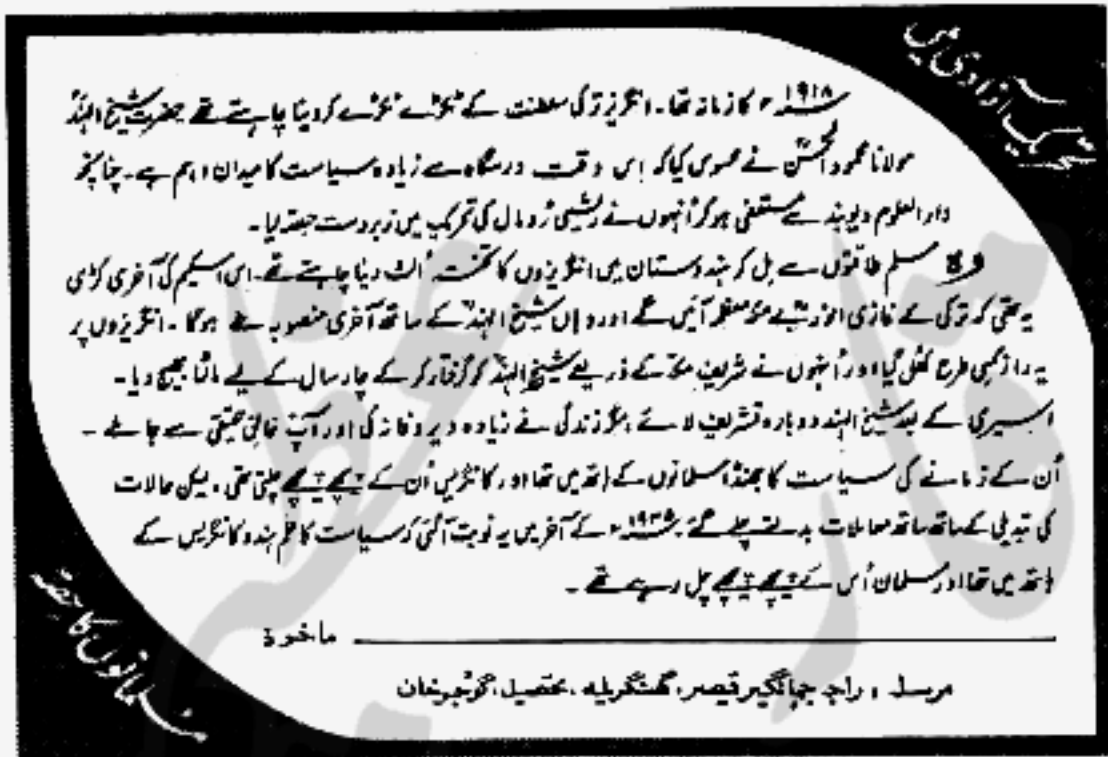 تحریک آزادی میں
۱۹۱۸ء کا زمانہ تھا۔ انگریز ترکی سلطنت کے ٹکڑے ٹکڑے کر دینا چاہتے تھے حضرت شیخ الہندؒ
مولانا محمود الحسنؒ نے محسوس کیا کہ اس وقت درسگاہ سے زیادہ سیاست کا میدان اہم ہے۔ چنانچہ
دار العلوم دیوبند سے مستعفی ہو کر اُنہوں نے ریشمی رُومال کی تحریک میں زبردست حصّہ لیا۔
وہ مسلم طاقتوں سے مل کر ہندوستان میں انگریزوں کا تختہ اُلٹ دینا چاہتے تھے۔ اس اسکیم کی آخری کڑی
یہ تھی کہ ترکی کے غازی انور بے مکہ معظمہ آئیں گے اور وہاں شیخ الہندؒ کے ساتھ آخری منصوبہ طے ہو گا۔ انگریزوں پر
یہ راز کسی طرح کھل گیا اور اُنہوں نے شریف مکّہ کے ذریعے شیخ الہندؒ کو گرفتار کر کے چار سال کے لیے مالٹا بھیج دیا۔
اسیری کے بعد شیخ الہند دوبارہ تشریف لائے مگر زندگی نے زیادہ دیر وفا نہ کی اور آپ خالق حقیقی سے جا ملے۔
اُن کے زمانے کی سیاست کا جھنڈا مسلمانوں کے ہاتھ میں تھا اور کانگریس اُن کے پیچھے پیچھے چلتی تھی، لیکن حالات
کی تبدیلی کے ساتھ ساتھ معاملات بدلتے چلے گئے۔ ۱۹۳۵ء کے آخر میں یہ نوبت آ گئی کہ سیاست کا عَلم ہندو کانگریس کے
ہاتھ میں تھا اور مسلمان اُس کے پیچھے پیچھے چل رہے تھے۔
ماخوذ
مرسلہ، راجہ جہانگیر قیصر، گھنگریلہ، تحصیل، گوجرخان
مسلمانوں کا حصّہ